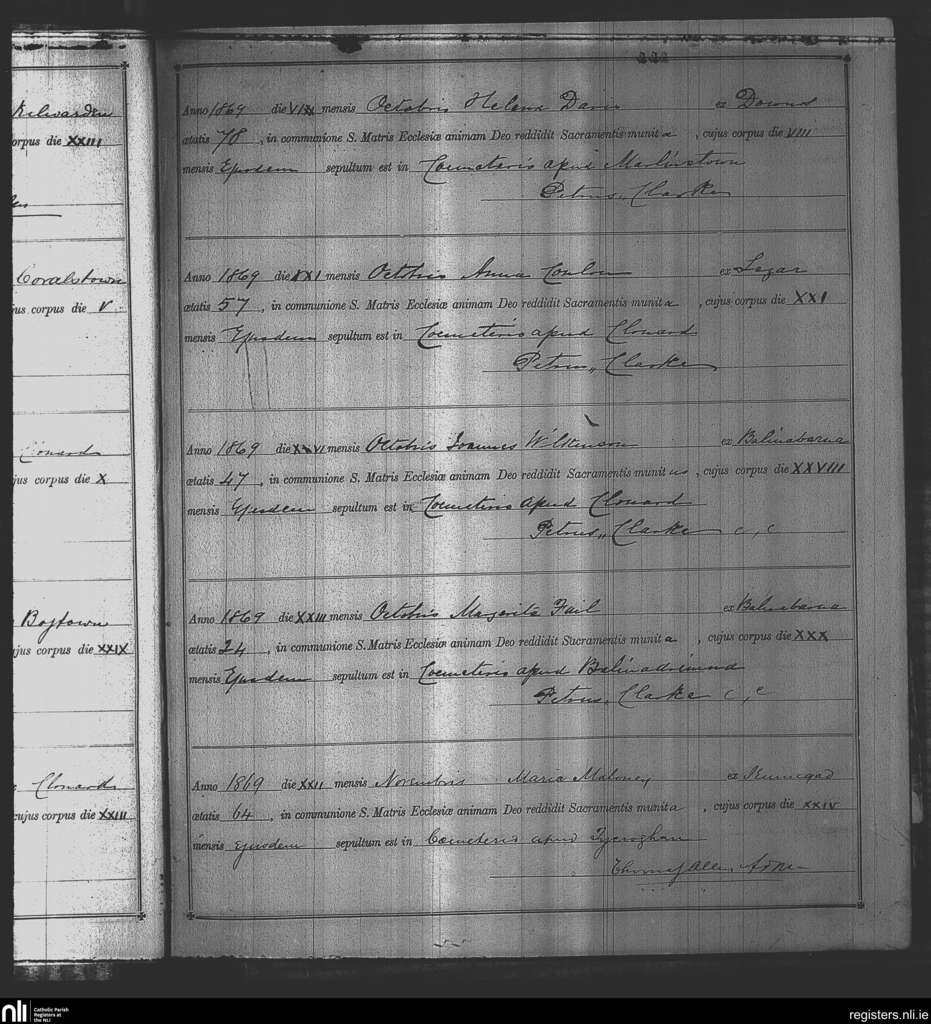 Kilwarden
orpus die XXIII
Coralstown
us corpus die V
Clonard
jus corpus die X
Boytown
jus corpus die XXIX
Clonard
cujus corpus die XXIII
222
Anno 1869 die mensis Octobris Helena Davis ex Downs
ætatis 78, in communione S. Matris Ecclesiæ animam Deo reddidit Sacramentis munit a, cujus corpus die VIII
mensis Ejusdem sepultum est in Coemeterio apud Marlinstown
Petrus Clarke
Anno 1869 die XXI mensis Octobris Anna Conlon ex Legar
ætatis 57, in communione S. Matris Ecclesiæ animam Deo reddidit Sacramentis munit a, cujus corpus die XXI
mensis Ejusdem sepultum est in Coemeterio apud Clonard
Petrus Clarke
Anno 1869 die mensis Octobris Joannes Wilkinson ex Balinabarna
ætatis 47, in communione S. Matris Ecclesiæ animam Deo reddidit Sacramentis munit us, cujus corpus die XXVIII
mensis Ejusdem sepultum est in Coemeterio apud Clonard
Petrus Clarke C, C
Anno 1869 die XXIII mensis Octobris Margerita Fail ex Balinabarna
ætatis 24, in communione S. Matris Ecclesiæ animam Deo reddidit Sacramentis munit a, cujus corpus die XXX
mensis Ejusdem sepultum est in Coemeterio apud Balinadrimna
Petrus Clarke C, C
Anno 1869 die XXII mensis Novembris Maria Maloney ex Kinnegad
ætatis 64, in communione S. Matris Ecclesiæ animam Deo reddidit Sacramentis munit a, cujus corpus die XXIV
mensis ejusdem sepultum est in Coemeterio apud Tyeroghan
nli Catholic Parish
Registers at
the NLI
registers.nli.ie